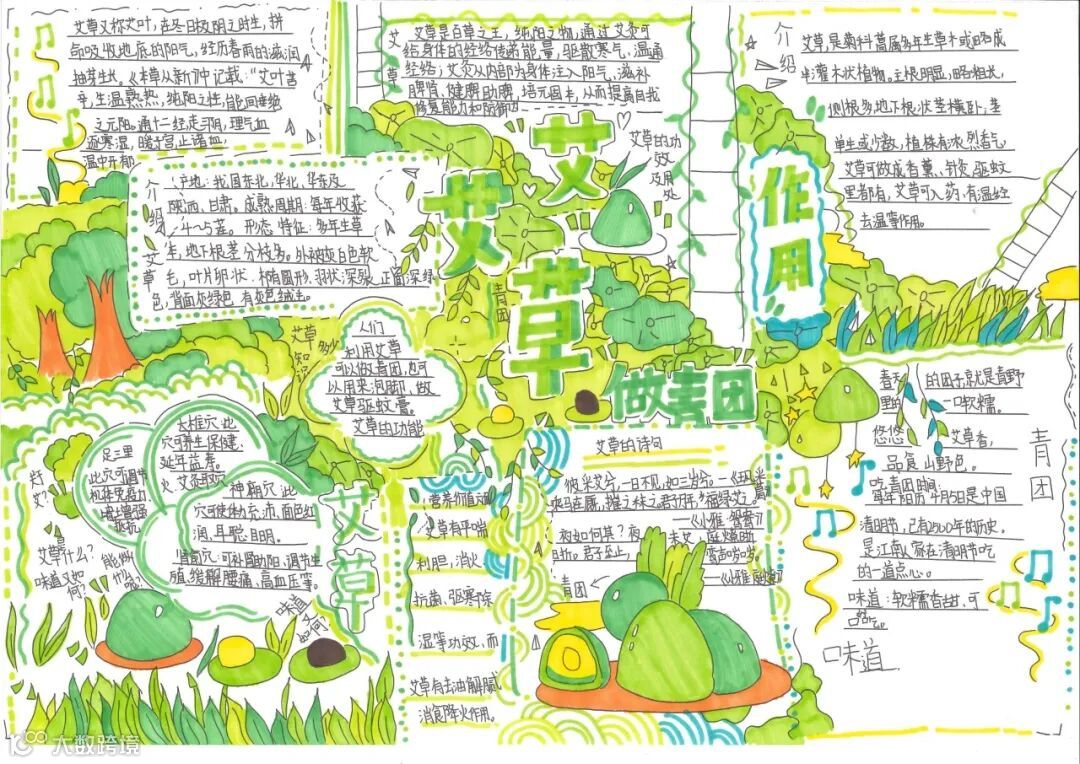 艾草又称艾叶，在冬日极阴之时生，拼
命吸收地底的阳气，经历春雨的滋润
抽芽生长。《本草从新》中记载："艾叶苦
辛，生温熟热，纯阳之性，能回垂绝
之元阳。通十二经走三阴，理气血
逐寒湿，暖子宫，止诸血，
温中开郁
艾草是百草之王，纯阳之物，通过艾灸可
给身体的经络传递能量，驱散寒气，温通
经络；艾灸从内部为身体注入阳气，滋补
脾肾、健脾助脾，培元固本，从而提高自我
修复能力和防御
艾草的功
效
及用
处
艾
艾
草
介绍
艾草，是菊科蒿属多年生草本或略成
半灌木状植物。主根明显，略粗长，
侧根多地下根状茎横卧，茎
单生或少数，植株有浓烈香气
艾草可做成香薰、针灸驱蚊
里都有，艾草可入药，有温经
去湿等作用。
作用
介绍艾草
产地：我国东北、华北、华东及
陕西、甘肃。成熟周期：每年收获
4~5茬。形态特征：多年生草
本，地下根茎分枝多。外被灰白色软
毛，叶片卵状、椭圆形，羽状深裂，正面深绿
色，背面灰绿色，有灰色绒毛。
青团
艾草
知识
人们
利用艾草
可以做青团，也可
以用来泡脚，做
艾草驱蚊膏。
艾草的功能
做青团
足三里
此穴可调节
机体免疫力
增强
大椎穴：此
穴可养生保健、
延年益寿。
神阙穴：此
穴可使体力充沛，面色红
润，耳聪目明。
肾俞穴：可补肾助阳，调节生
殖，缓解腰痛，高血压等。
艾草
艾草是什么？
味道又如
何？
能做
什么
味道又
如何？
营养价值
艾草有平喘
利胆，消火
抗菌、驱寒除
湿等功效，而
艾草有去油解腻
消食降火作用。
艾草的诗句
彼采艾兮，一日不见，如三岁兮。
——《小雅·鸳鸯》
夜如何其？夜未艾，庭燎晣晣
君子至止，鸾声哕哕。
青团
春天
里的
的团子就是青野
一口软糯。
悠悠
艾草香，
品食山野色。
吃青团时间：
每年阳历4月5日是中国
清明节，已有2500年的历史，
是江南人家在清明节吃
的一道点心。
味道：软糯香甜，可
口
青团
味道
大数跨境